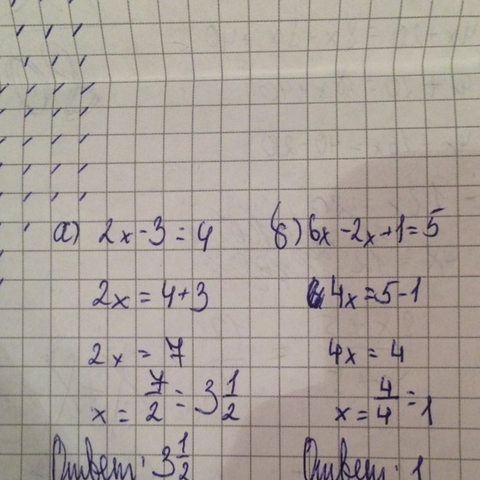 а) 2x-3=4
2x=4+3
2x=7
x=7/2=3 1/2
Ответ: 3 1/2
б) 6x-2x+1=5
4x=5-1
4x=4
x=4/4=1
Ответ: 1